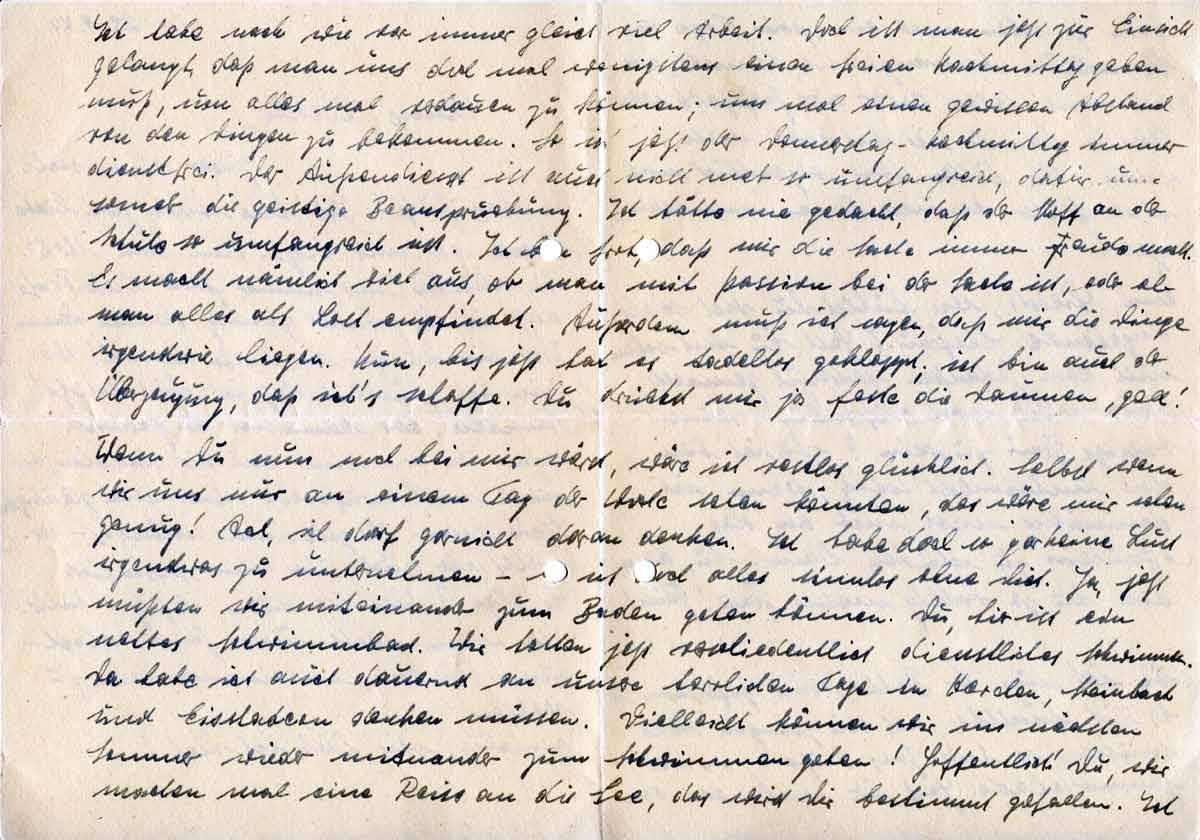 Ich habe nach wie vor immer gleich viel Arbeit. Doch ist man jetzt zur Einsicht
gelangt, daß man uns doch mal wenigstens einen freien Nachmittag geben
muß, um alles mal verdauen zu können; um mal einen gewissen Abstand
von den Dingen zu bekommen. So ist jetzt der Donnerstag-Nachmittag immer
dienstfrei. Der Außendienst ist auch nicht mehr so umfangreich, dafür um-
somehr die geistige Beanspruchung. Ich hätte nie gedacht, daß der Stoff an der
Schule so umfangreich ist. Ich bin froh, daß mir die Sache immer Freude macht.
Es macht nämlich viel aus, ob man mit Passion bei der Sache ist, oder ob
man alles als Last empfindet. Außerdem muß ich sagen, daß mir die Dinge
irgendwie liegen. Nun, bis jetzt hat es tadellos geklappt; ich bin auch der
Überzeugung, daß ich's schaffe. Du drückst mir ja feste die Daumen, gell!
Wenn Du nun noch bei mir wärst, wäre ich restlos glücklich. Selbst wenn
wir uns nur an einem Tag der Woche sehen könnten, das wäre mir schon
genug! Ach, ich darf garnicht daran denken. Ich habe doch so gar keine Lust
irgendwas zu unternehmen – es ist doch alles sinnlos ohne Dich. Ja, jetzt
müßten wir miteinander zum Baden gehen können. Du, hier ist ein
nettes Schwimmbad. Wir hatten jetzt verschiedentlich dienstliches Schwimmen.
Da habe ich auch dauernd an unsre herrlichen Tage in Horden, Steinbach
und denken müssen. Vielleicht können wir im nächsten
Sommer wieder miteinander zum Schwimmen gehen! Hoffentlich! Du, wir
machen mal eine Reise an die See, das wird Dir bestimmt gefallen. Ich